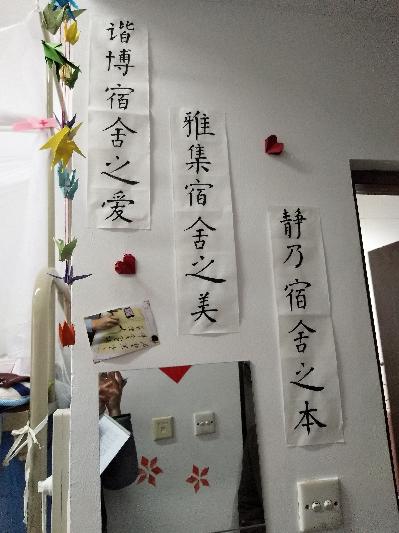 谐博宿舍之爱
雅集宿舍之美
静乃宿舍之本